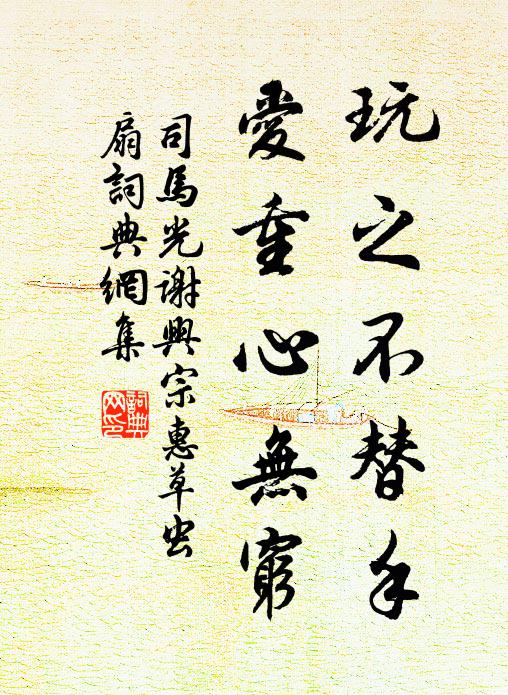 玩之不替手
愛重心無窮
司馬光謝興宗惠草虫
扇詞典網集
詞典
网印